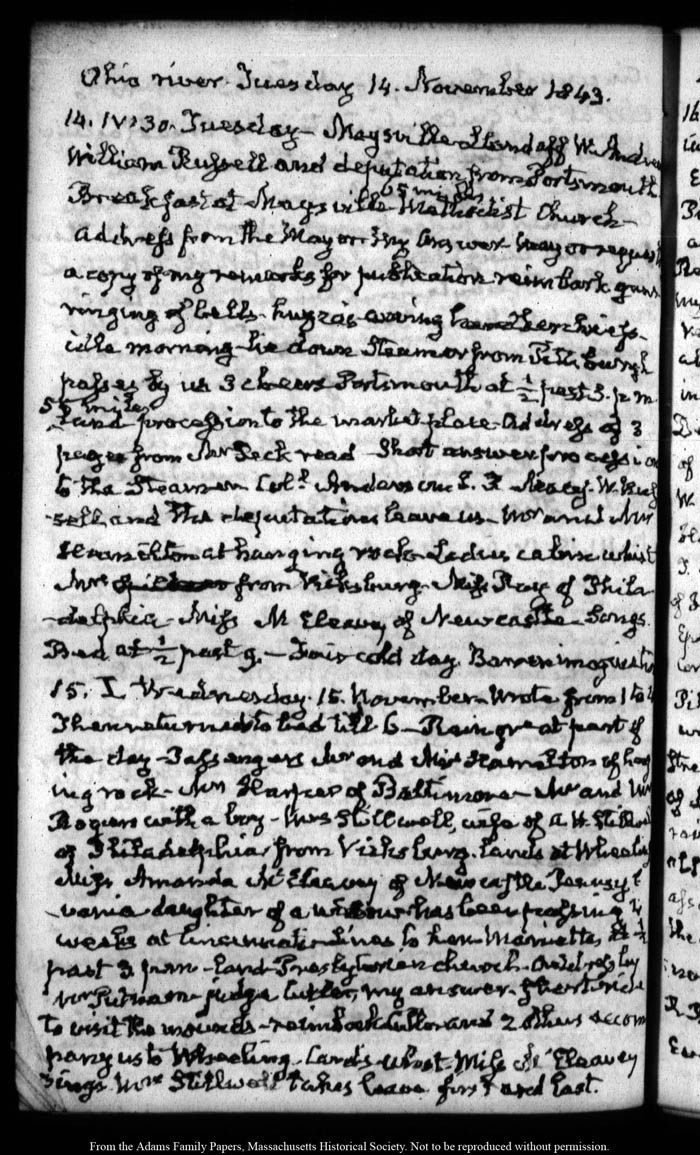 Ohio river. Tuesday 14. November 1843.
14. IV:30. Tuesday - Maysville Landaff W. Andrew
William Russell and deputation from Portsmouth
65 miles
Breakfast at Maysville Methodist Church -
address from the Mayor - my answer Mayor request
a copy of my remarks for publication reimbark guns
ringing of bells - huzzas waving handkerchiefs -
idle morning - lie down Steamer from Pittsburgh
passes by us 3 cheers Portsmouth at ½ past 3. p.m
55 miles
land procession to the market place - Address of 3
pages from Mr Peck read - Short answer procession
to the Steamer Col. Anderson W. Rus
sell, and the deputation leave us - Mr and Mrs
Hamilton at hanging rock - Ladies cabin whist
Mrs from Vicksburg - Miss Ray of Phila
delphia - Miss McEleavy of Newcastle Songs.
Bed at ½ past 9. - Fair cold day. Barren imagination
15. I. Wednesday. 15. November - Wrote from 1 to
then returned to bed till 6 - Rain great part of
the day - Passengers Mr and Mrs Hamilton of hang
ing rock - Mrs Harper of Baltimore - Mr and Mrs
Rogers with a boy - Mrs Stillwell, wife of A. H. Stillwell
of Philadelphia from Vicksburg. lands at Wheeling
Miss Amanda McEleavy of Newcastle Pennsyl
vania daughter of a widow has been passing
weeks at Cincinnati - Lines to her - Marietta, at ½
past 3 p.m - land Presbyterian church - Address by
Mr Putnam - judge Cutler, my answer - short ride
to visit the mounds - reimbark Cutler and 2 others accom
pany us to Wheeling. Cards - whist Miss McEleavy
sings. Mrs Stillwell takes leave first and last.
From the Adams Family Papers, Massachusetts Historical Society. Not to be reproduced without permission.